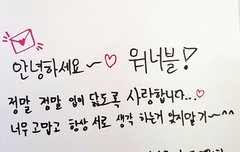 안녕하세요~♡ 워너블!
정말 정말 입이 닳도록 사랑합니다...♡
너무 고맙고 항상 서로 생각 하는거 잊지말기~^^